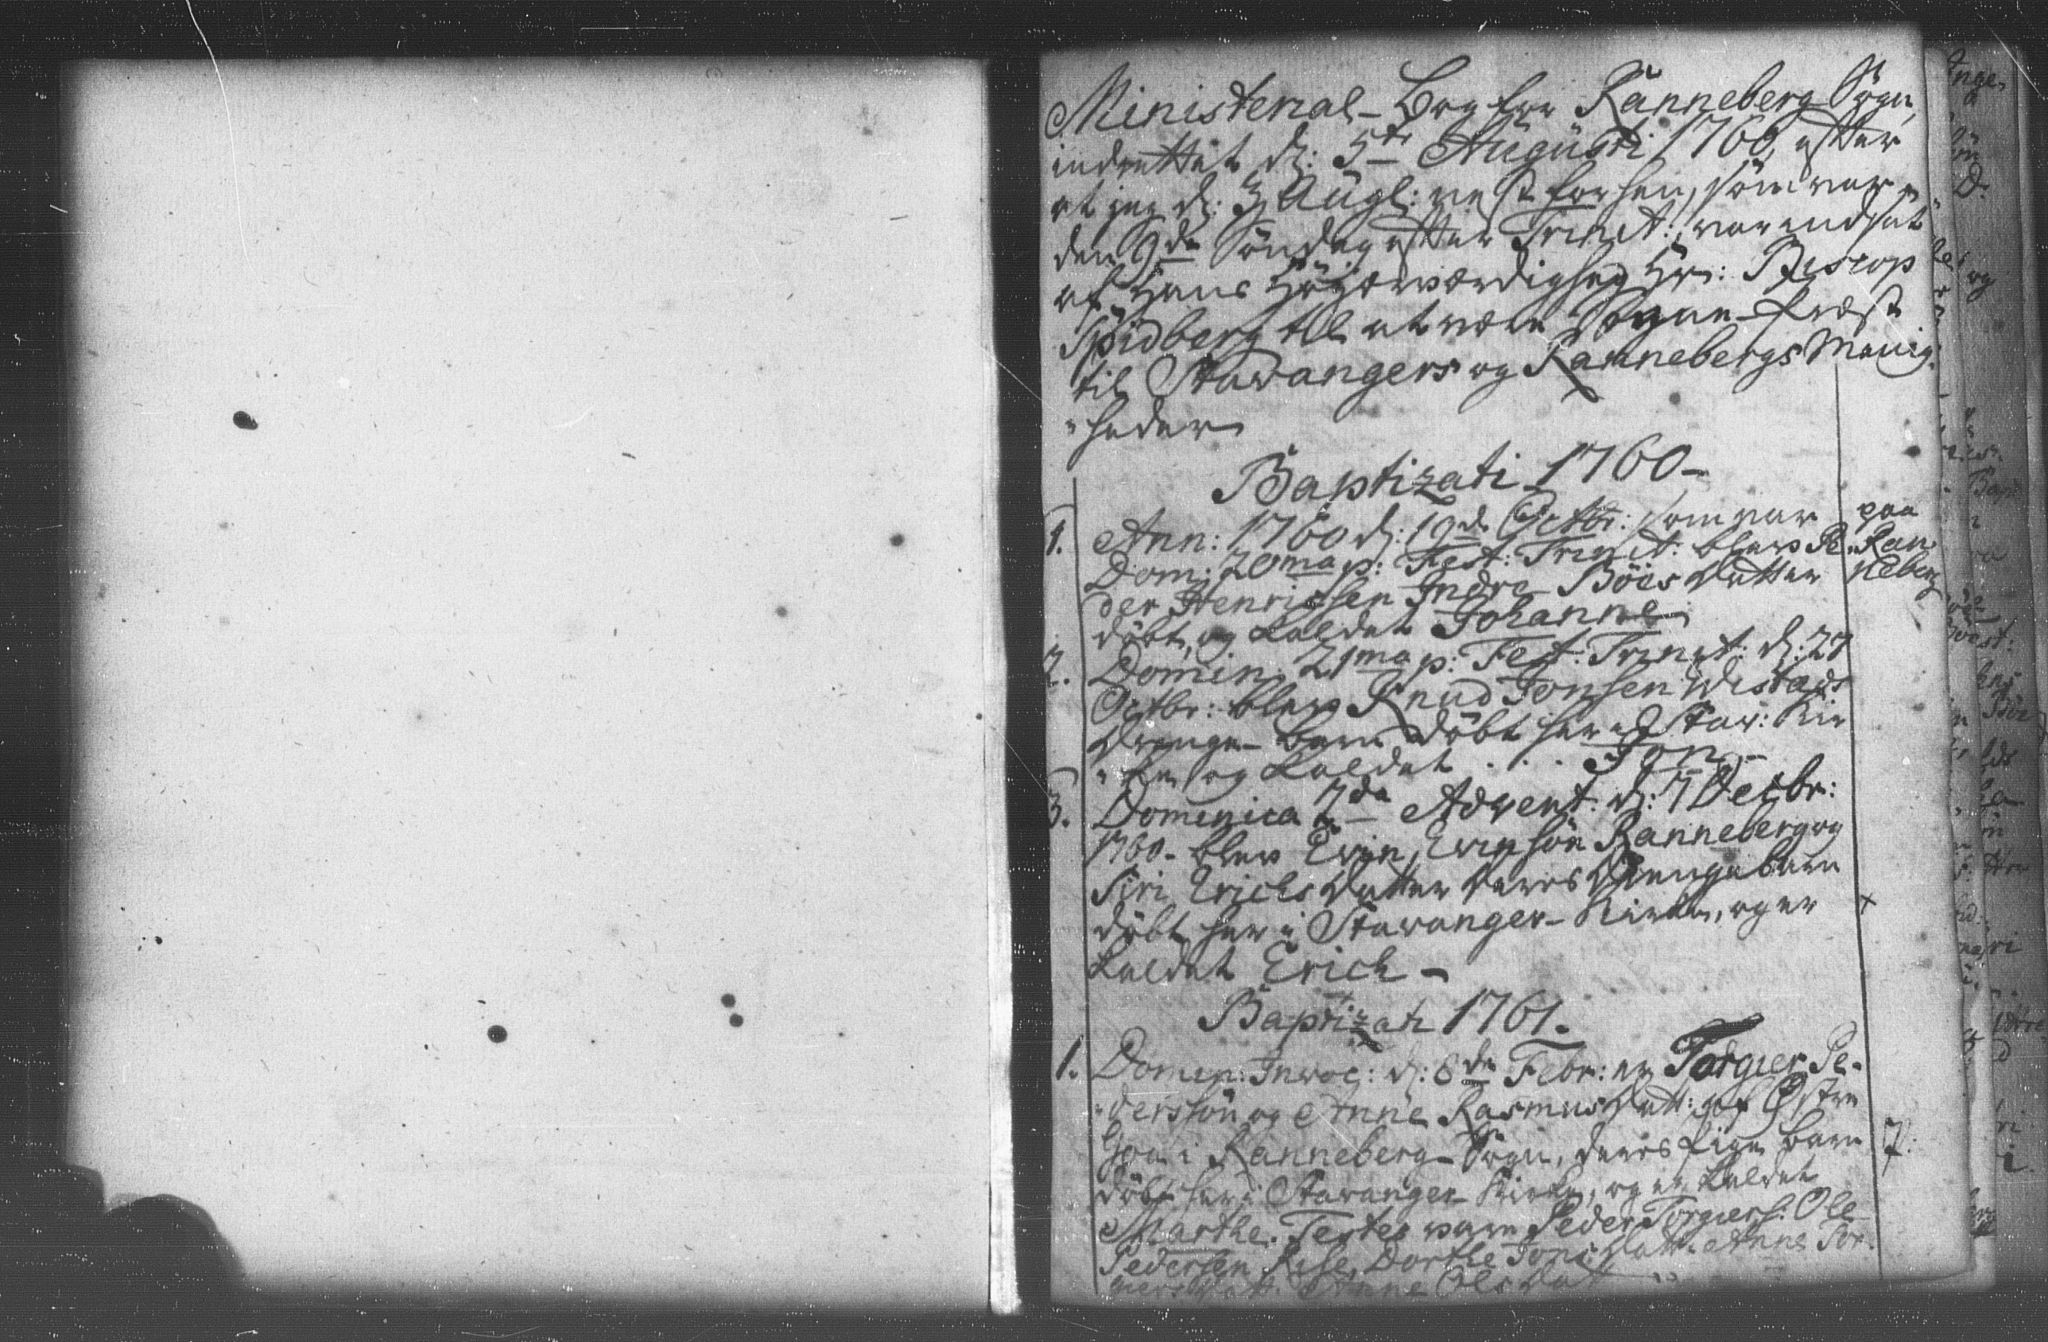 Ministerial-Bog for Ranneberg Sogn,
indrettet d: 5te Augusti 1760, efter
at jeg d: 3 Augl: nest forhen, som var
den 9de Søndag efter Trinit:, var indsat
af Hans Höyærværdighed Hr: Biscop
Spidberg til at være Sogne-Præst
til Stavangers og Rannebergs Menig-
heder
Baptizati 1760-
1. Ann: 1760 d: 19de Octbr: som var
Dom: 20ma p: Fest: Trinit: blev Pe-
der Henrichsen Indre Böes Datter
döbt, og kaldet Johanne
paa
Ran-
neberg
2. Domin: 21ma p: Fest: Trinit: d: 27
Octbr: blev Knud Jonsen Wistads
Drenge-barn döbt her i Stav: Kir
ke og kaldet . . . Jon -
3. Dominica 2da Advent: d: 7 Decbr:
1760- blev Evin Evinsön Ranneberg og
Siri Erichs Datter deres Drengebarn
döbt her i Stavanger-Kirke, og er
kaldet Erich -
x
Baptizati 1761.
1. Domin: Invoc: d: 8de Febr: er Torgier Pe-
dersson og Anne Rasmus Datt: af Østre
Goa i Ranneberg-Sogn, deres Pige barn
döbt her i Stavanger Kirke, og er kaldet
7.
Marthe. Testes vare Peder Torgiers: Ole
Pedersen Rise, Dorthe Jons Datt: Anne Tor
giers Datt: Anne Ols Dat